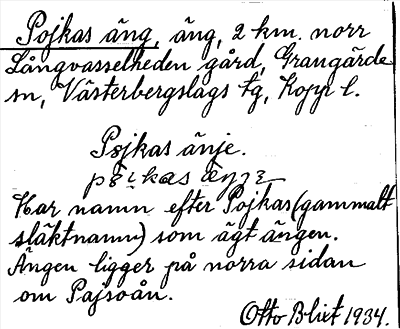 Pojkas äng, äng, 2 km. norr
Långvasselheden gård, Grangärde
sn, Västerbergslags tg, Kopp l.
Påjkas änje.
Har namn efter Pojkas (gammalt
släktnamn) som ägt ängen.
Ängen ligger på norra sidan
om Pajsoån.
Otto Blixt 1934.